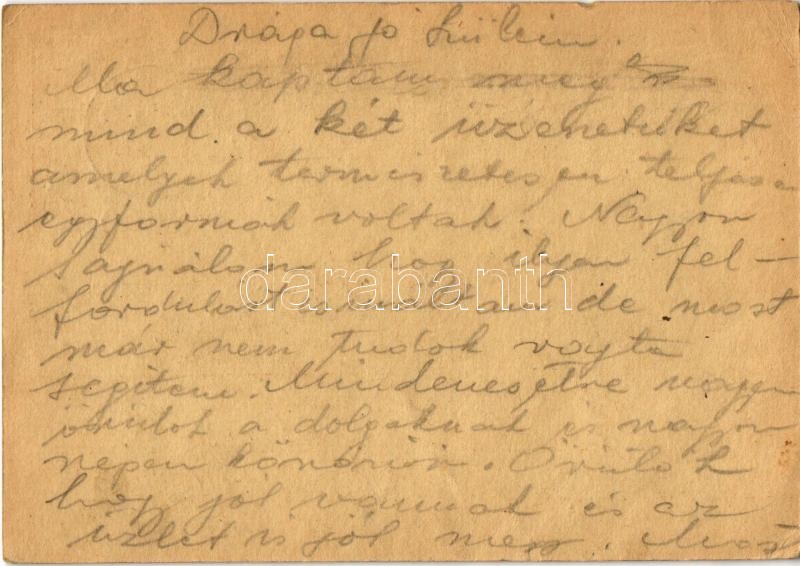 Drága jó Szüleim.
Ma kaptam meg
mind a két üzenetüket
amelyek termiszetesen teljesen
egyformák voltak. Nagyon
sajnálom hog ilyen fel-
fordulást de most
már nem tudok rajta
segiteni. Mindenesetre nagyon
örülök a dolgoknak és nagyon
szépen köszönöm. Örülök
hogy jól vannak és az
üzlet is jól megy. Most
darabanth.com